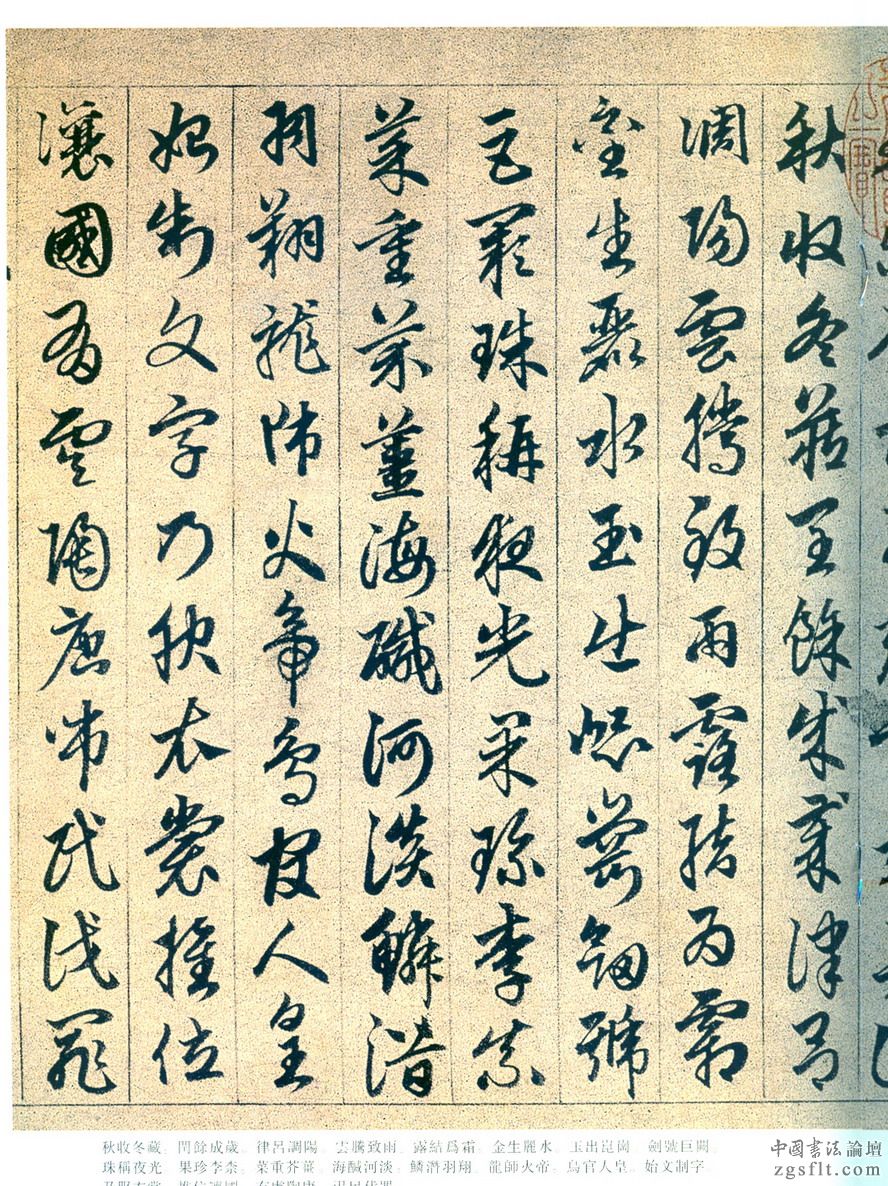 秋收冬藏閏餘成歲律呂
調陽雲騰致雨露結為霜
金生麗水玉出崐崗劍號
巨闕珠稱夜光果珍李柰
菜重芥薑海醎河淡鱗潛
羽翔龍師火帝鳥官人皇
始制文字乃服衣裳推位
讓國有虞陶唐弔民伐罪
秋收冬藏。閏餘成歲。律呂調陽。雲騰致雨。露結爲霜。金生麗水。玉出崑崗。劍號巨闕。
珠稱夜光。果珍李柰。菜重芥薑。海鹹河淡。鱗潛羽翔。龍師火帝。鳥官人皇。始文制字。
中國書法論壇
zgsflt.com